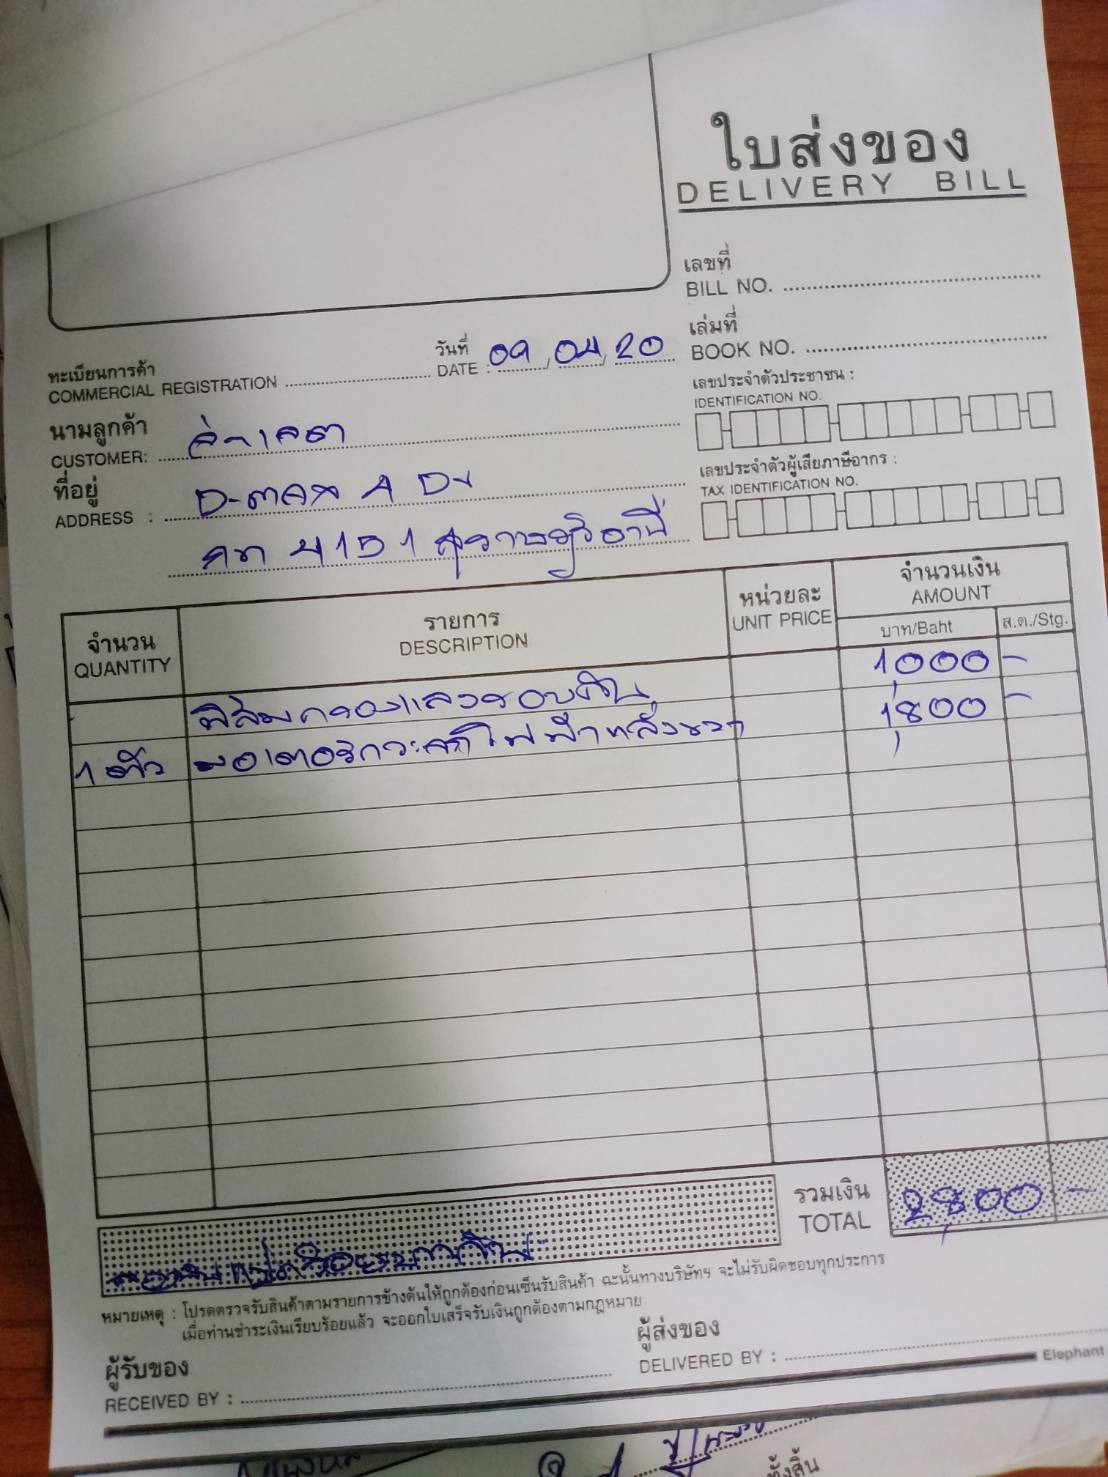 ใบส่งของ
DELIVERY BILL
เลขที่
BILL NO.
เล่มที่
BOOK NO.
ทะเบียนการค้า
COMMERCIAL REGISTRATION
วันที่
DATE : 09, 04, 20
เลขประจำตัวประชาชน :
IDENTIFICATION NO.
นามลูกค้า
CUSTOMER:
ที่อยู่
ADDRESS :
เลขประจำตัวผู้เสียภาษีอากร :
TAX IDENTIFICATION NO.
4151 สุราษฎร์ธานี
จำนวน
QUANTITY
รายการ
DESCRIPTION
หน่วยละ
UNIT PRICE
จำนวนเงิน
AMOUNT
บาท/Baht ส.ต./Stg.
ฟิล์มกรองแสงรอบคัน 1,000 -
1 ตัว มอเตอร์กระจกไฟฟ้าหลังขวา 1,800 -
รวมเงิน
TOTAL
2,800 -
หมายเหตุ : โปรดตรวจรับสินค้าตามรายการข้างต้นให้ถูกต้องก่อนเซ็นรับสินค้า ฉะนั้นทางบริษัทฯ จะไม่รับผิดชอบทุกประการ
เมื่อท่านชำระเงินเรียบร้อยแล้ว จะออกใบเสร็จรับเงินถูกต้องตามกฎหมาย
ผู้รับของ
RECEIVED BY :
ผู้ส่งของ
DELIVERED BY :
Elephant
ทั้งสิ้น